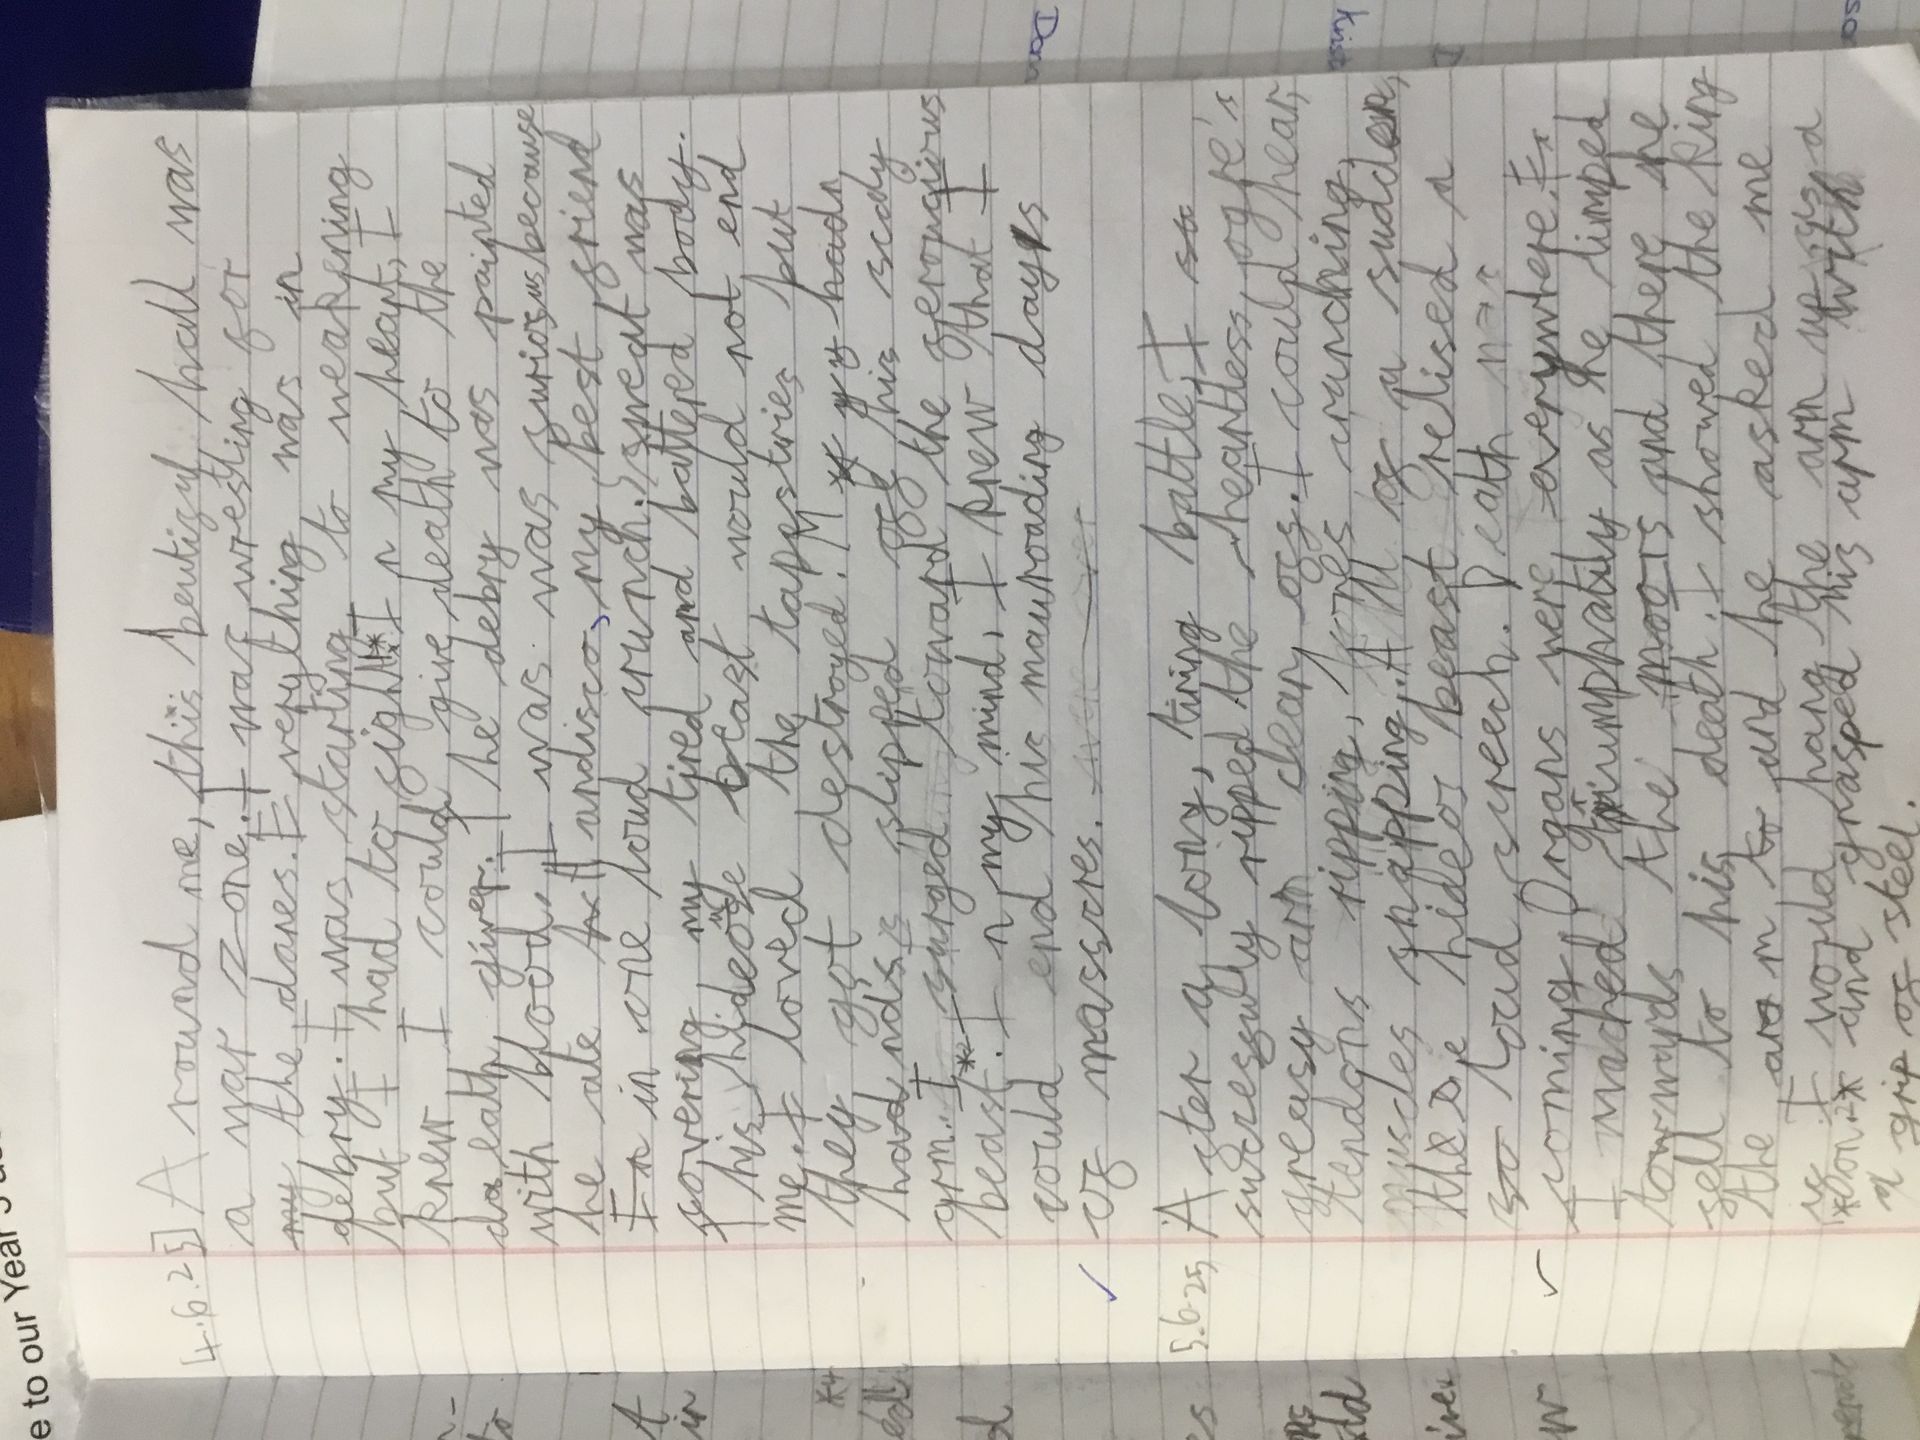 4.6.25] Around me, this beutiful hall was
a war zone. I was wresting for
my the danes. Everything was in
debry. I was starting to weakening
but I had to fight*1. In my heart, I
knew I could give death to the
death giver. The debry was painted
with blood. I was was furious because
he ate Handisco, my best friend
in one loud crunch. Sweat was
covering my tired and battered body.
This hideos beast would not end
me. I loved the tappestries but
they got destroyed! My hadn
hands slipped off his scaly
arm. I*2 surged toward the ferougious
beast. In my mind, I knew that I
would end his mauroading days
of masscres.
5.6.25 After a long, tiring battle, I
sucressfuly ripped the heartless ogre's
greasy arm clean off. I could hear,
tendons ripping, crunching,
muscles snapping. All of a sudden,
the hideos beast relised a
loud screech. Death was
coming Organs were everywhere.
I mached triumphatily as he limped
towards the moors and there he
fell to his death. I showed the king
the arm to and he asked me
if I would hang the arm up as a
and grasped his arm with
a grip of steel.
e to our Year 5
Dan